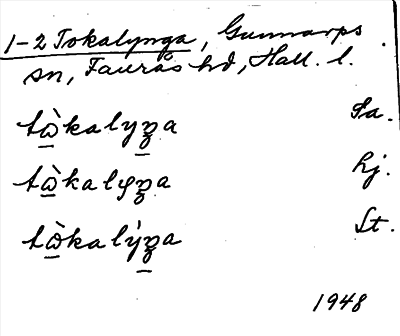 1-2 Tokalynga, Gunnarps
sn, Faurås hd, Hall. l.
tὼkalyꞑa Sa.
tὼkalyꞑa hj.
tὼkalýꞑa St.
1948